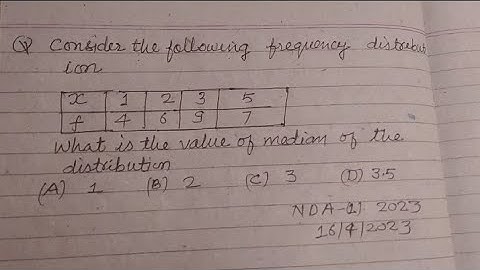 Q Consider the following frequency distribut
ion
x 1 2 3 5
f 4 6 9 7
What is the value of median of the
distribution
(A) 1 (B) 2 (C) 3 (D) 3.5
NDA-(1) 2023
16/4/2023